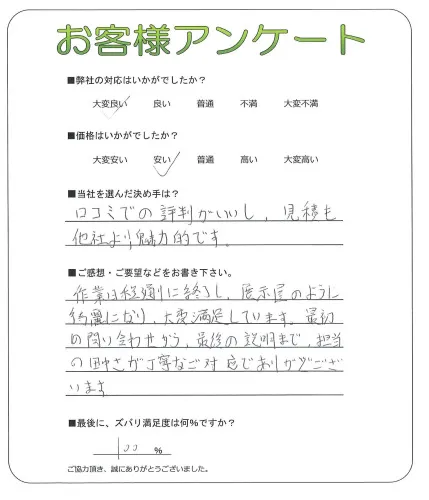 お客様アンケート
■弊社の対応はいかがでしたか？
大変良い 良い 普通 不満 大変不満
■価格はいかがでしたか？
大変安い 安い 普通 高い 大変高い
■当社を選んだ決め手は？
口コミでの評判がいいし、見積も
他社より魅力的です。
■ご感想・ご要望などをお書き下さい。
作業は順調に終了し、展示屋のように
綺麗になり、大変満足しています。最初
の問い合わせから、最後の説明まで、担当
の田中さが丁寧なご対応でありがとうござ
います
■最後に、ズバリ満足度は何％ですか？
100 ％
ご協力頂き、誠にありがとうございました。